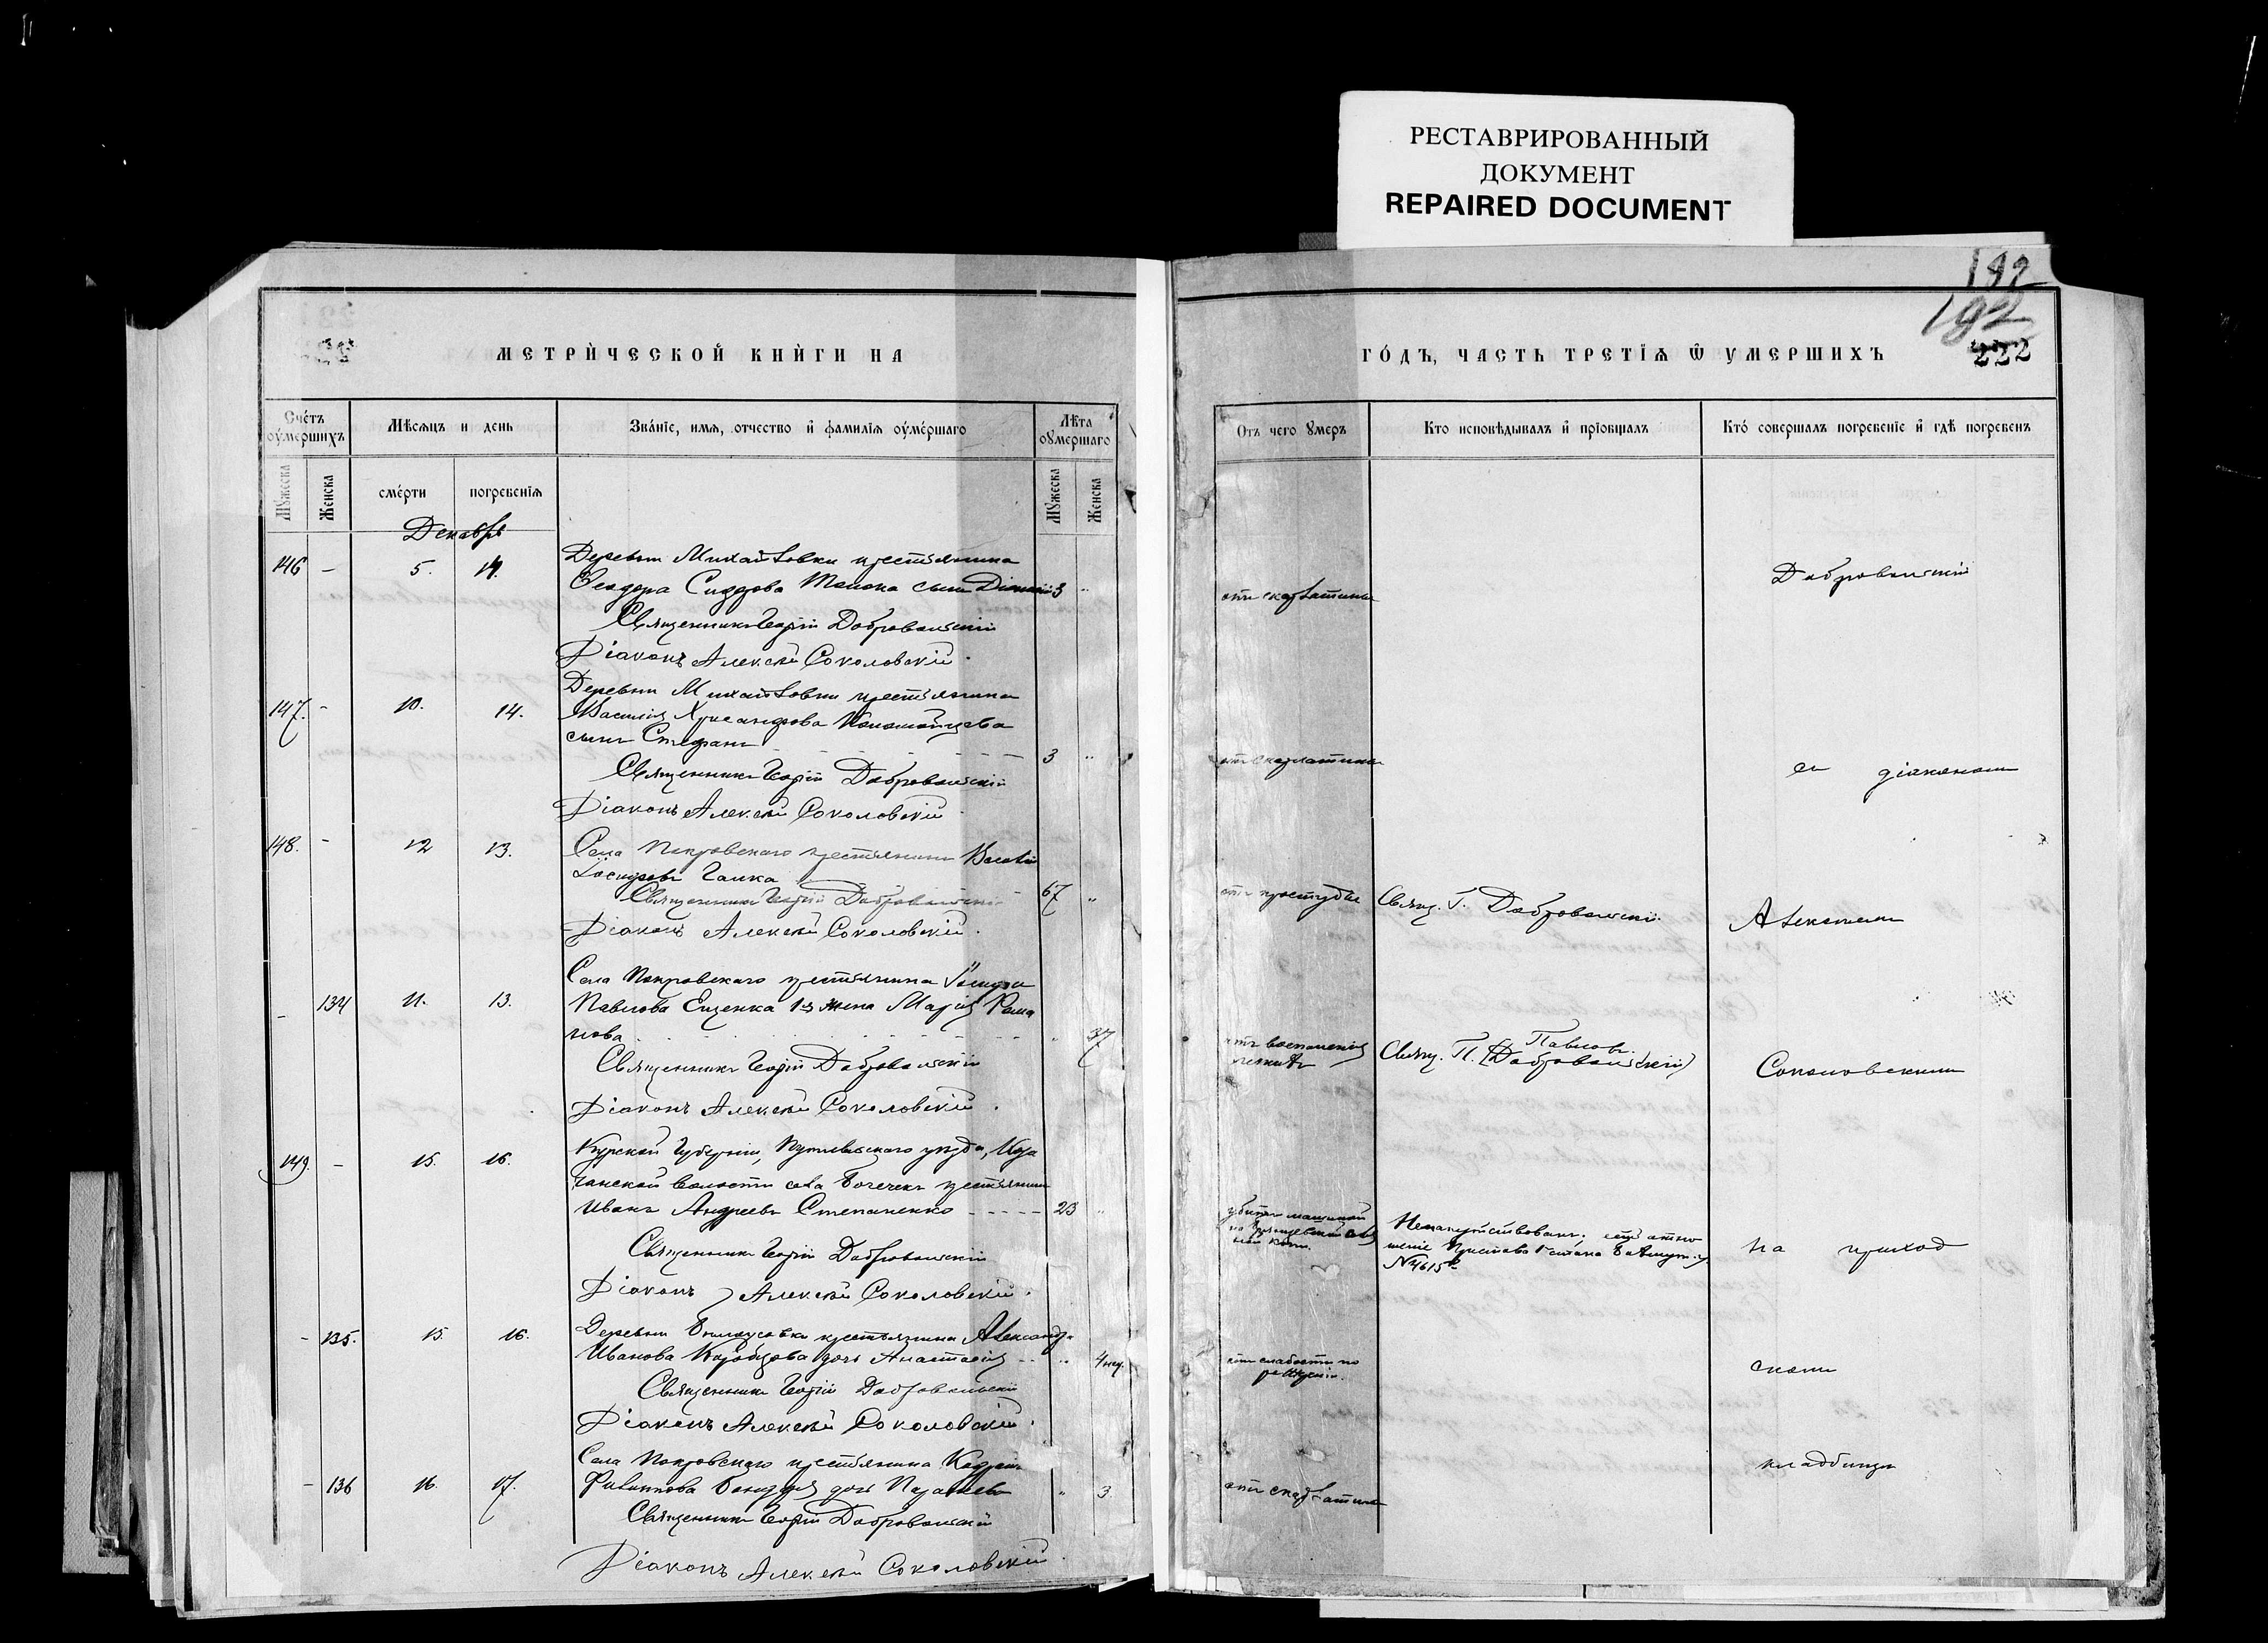 РЕСТАВРИРОВАННЫЙ
ДОКУМЕНТ
REPAIRED DOCUMENT
192
192
222
МЕТРИЧЕСКОЙ КНИГИ НА
ГОДЪ, ЧАСТЬ ТРЕТІЯ Ѿ УМЕРШИХЪ
Счетъ оумершихъ
Мѣсяцъ и день
Званіе, имя, отчество и фамилія оумершаго
Лѣта оумершаго
Отъ чего умеръ
Кто исповѣдывалъ и пріобщалъ
Кто совершалъ погребеніе и гдѣ погребенъ
Мужеска
Женска
смерти
погребенія
Мужеска
Женска
Декабрь
146 - 5. 14.
Деревни Михайловки крестьянина
Ѳеодора сынъ 3 "
отъ скарлатины
Добровольскій
Священникъ Георгій Добровольскій
Діаконъ Алексѣй Соколовскій
147. - 10. 14.
Деревни Михайловки крестьянина
Василія Хрисанфова Коломойцева
сынъ Стефанъ 3 "
отъ скарлатины
съ діакономъ
Священникъ Георгій Добровольскій
Діаконъ Алексѣй Соколовскій
148. - 12 13.
Села Покровскаго крестьянинъ
Галка 67 "
отъ простуды
Свящ. Г. Добровольскій.
Алексѣемъ
Священникъ Георгій Добровольскій
Діаконъ Алексѣй Соколовскій.
- 134 11. 13.
Села Покровскаго крестьянина
Павлова Ещенка 1-я жена Марія Рома
нова " 37
отъ воспаленія
легкихъ
Свящ. П. Павловъ
(Добровольскій)
Соколовскимъ
Священникъ Георгій Добровольскій
Діаконъ Алексѣй Соколовскій.
149. - 15. 16.
Курской Губерніи, Путивльскаго уѣзда, Каза
чанской волости села Бочечекъ крестьянинъ
Иванъ Андреевъ Степаненко 23 "
убитъ машиной
на
Ненапутствованъ, есть отно
шеніе Пристава 1 стана
№ 4615
на приход
Священникъ Георгій Добровольскій
Діаконъ Алексѣй Соколовскій.
- 135. 15. 16.
Деревни крестьянина Александра
Иванова дочь Анастасія " 4 нед.
отъ слабости по
рожденіи.
скомъ
Священникъ Георгій Добровольскій
Діаконъ Алексѣй Соколовскій.
- 136 16. 17.
Села Покровскаго крестьянина
Филиппова дочь " 3.
отъ скарлатины
кладбищѣ
Священникъ Георгій Добровольскій
Діаконъ Алексѣй Соколовскій.